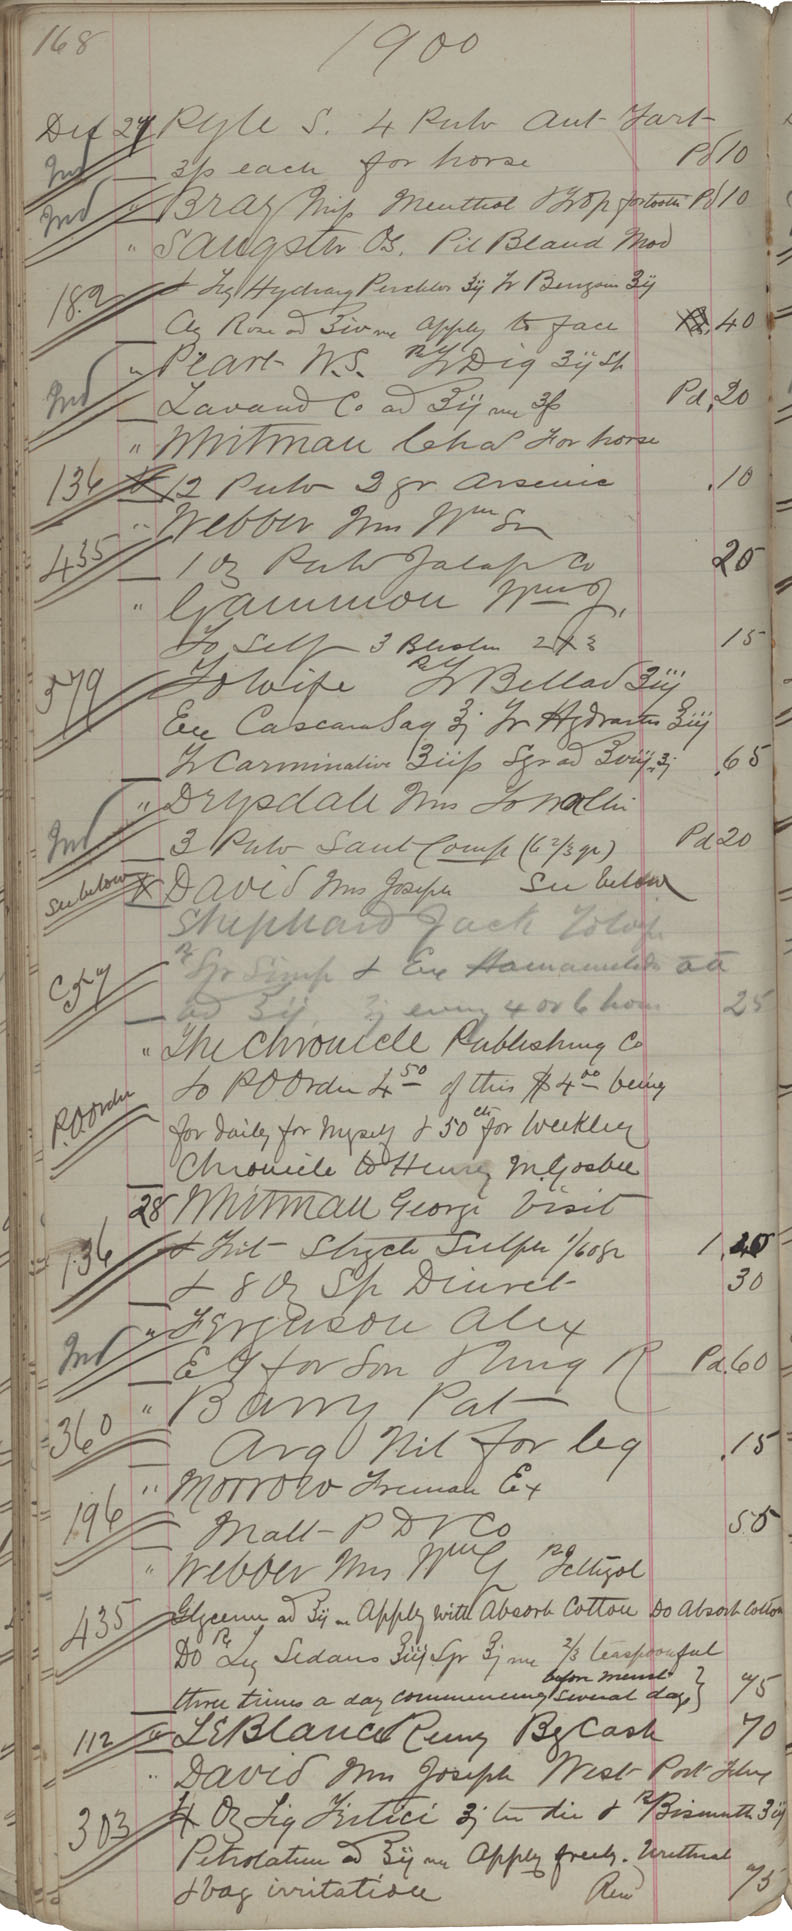 168 1900
Dec 27 Pyle S. 4 Pulv Ant Tart
Ind ʒss each for horse Pd 10
Ind " Bray Mrs Menthol & Tr Op for tooth Pd 10
" Sangster Os. Pil Blaud Mod
182 & Liq Hydrarg Perchlor ʒij Tr Benzoin ʒij
Aq Rose ad ℥iv me Apply to face .40
" Peart W.S. ℞ Tr Dig ʒij Sp
Ind Lavand Co ad ℥ij me Pd .20
" Whitman Chas For horse
136 12 Pulv 2 gr Arsenic .10
" Webber Mrs Wm Sr
435 1 Oz Pulv Jalap Co 25
" Gammon Wm J.
To Self 3 Blister 2 x 3 15
379 To Wife ℞ Tr Bellad ʒiij
Ext Cascara Sag ℥j Tr Hydrastis ʒiij
Tr Carminative ʒiiss Syr ad ℥viij ʒj .65
" Drysdale Mrs
Ind 3 Pulv Sant Comp (6 2/3 gr) Pd 20
See below X David Mrs Joseph See below
Shephard Jack
C57 ℞ Syr Simp & Ext Hamamelidis aa
ad ℥ij ʒj every 4 or 6 hours 25
" The Chronicle Publishing Co
P.O. Order to P O Order 4 50 of this $4 00 being
for daily for Myself & 50 cts for Weekly
Chronicle to Henry M. Gosbee
28 Whitman George Visit
136 & Trit Strych Sulph 1/60 gr 1.
& 8 Oz Sp Diuret 30
" Ferguson Alex
Ind E T for Son Pd .60
360 " Barry Pat
Arg Nit for leg .15
" Morrow Freeman Ex
196 Malt P D & Co 50
" Webber Mrs Wm G ℞ Icthyol
435 Glycerin ad ℥ij me Apply with Absorb Cotton Do Absorb Cotton
Do ℞ Liq Sedans ℥iij Syr ℥j me 2/3 teaspoonful
before menst
three times a day commencing several days } 75
112 " LeBlanc Remy By Cash 70
" David Mrs Joseph West Port
303 4 Oz Liq ʒj & ℞ Bismuth ʒij
Petrolatum ad ℥ij me Apply freely. Urethral
& vag irritation 75